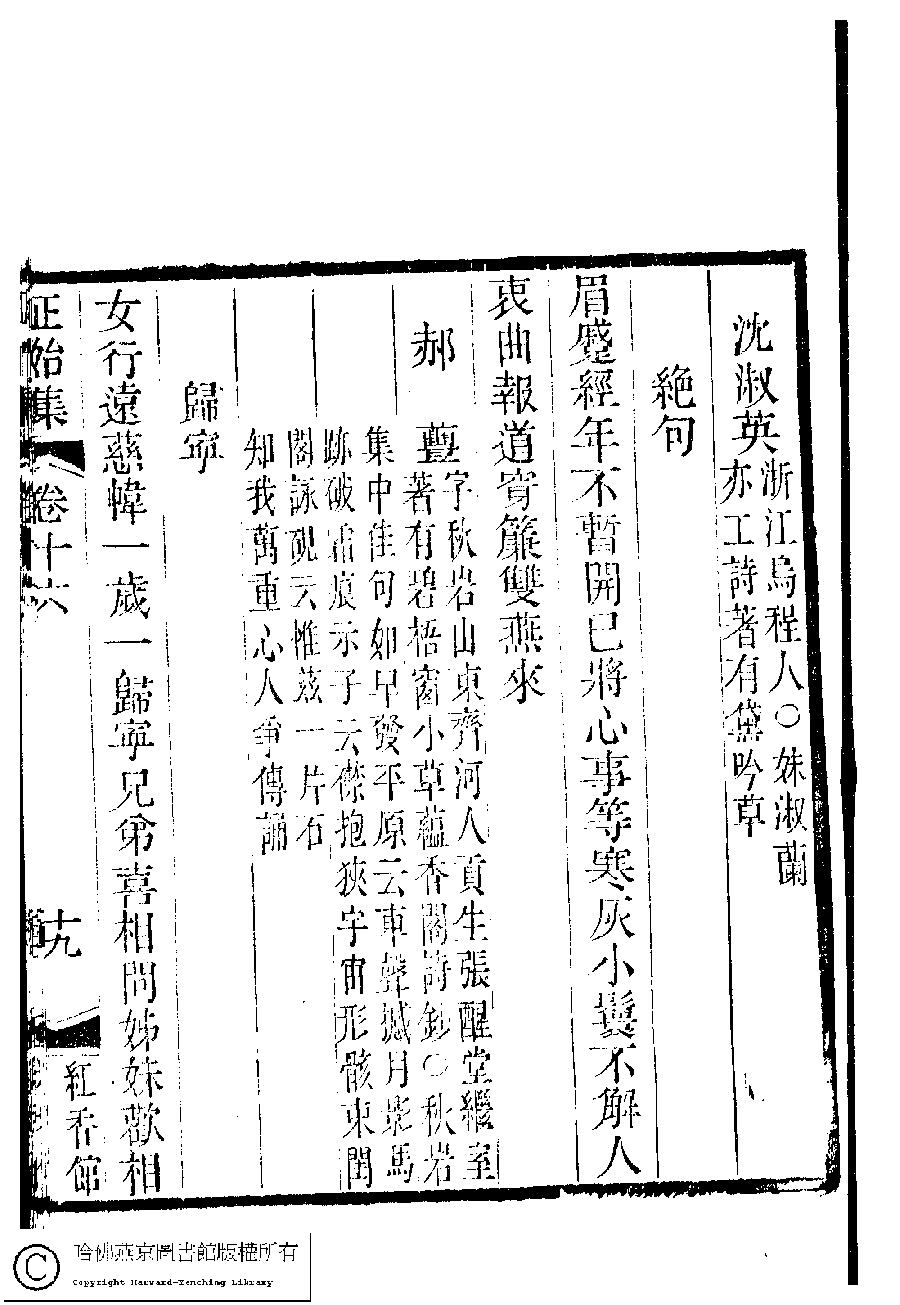 沈淑英
浙江烏程人○妹淑蘭
亦工詩著有黛吟草
絕句
眉蹙經年不暫開已將心事等寒灰小鬟不解人
衷曲報道穿簾雙燕來
郝蘁
字秋岩山東齊河人貢生張醒堂繼室
著有碧梧窗小草蘊香閣詩鈔○秋岩
集中佳句如早發平原云車聲撼月影馬
跡破霜痕示子云襟抱狹宇宙形骸束閨
閤詠硯云惟茲一片石
知我萬重心人爭傳誦
歸寧
女行遠慈幃一歲一歸寧兄弟喜相問姊妹歡相
正始集
卷十六
十九
紅香館
哈佛燕京圖書館版權所有
Copyright Harvard-Yenching Library